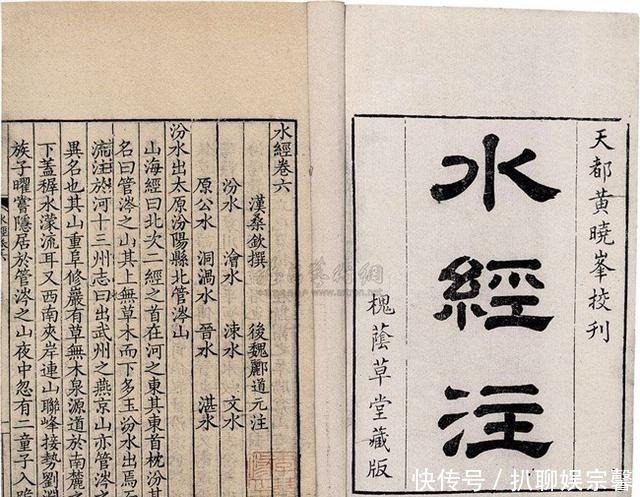 天都黄曉峯挍刊
水經注
槐蔭草堂藏版
水經卷六
漢桑欽撰 後魏酈道元注
汾水 澮水 涑水 文水
原公水 洞渦水 晉水 湛水
汾水出太原汾陽縣北管涔山
山海經曰北次二經之首在河之東其東首枕汾其
名曰管涔之山其上無草木而下多玉汾水出焉
流注於河十三州志曰出武州之燕京山亦管涔之
異名也其山重阜修巖有草無木泉源導於南麓之
下蓋稺水濛流耳又西南夾岸連山聯峰接勢劉淵
族子曜嘗隱居於管涔之山夜中忽有二童子入
快传号／扒聊娱宗馨